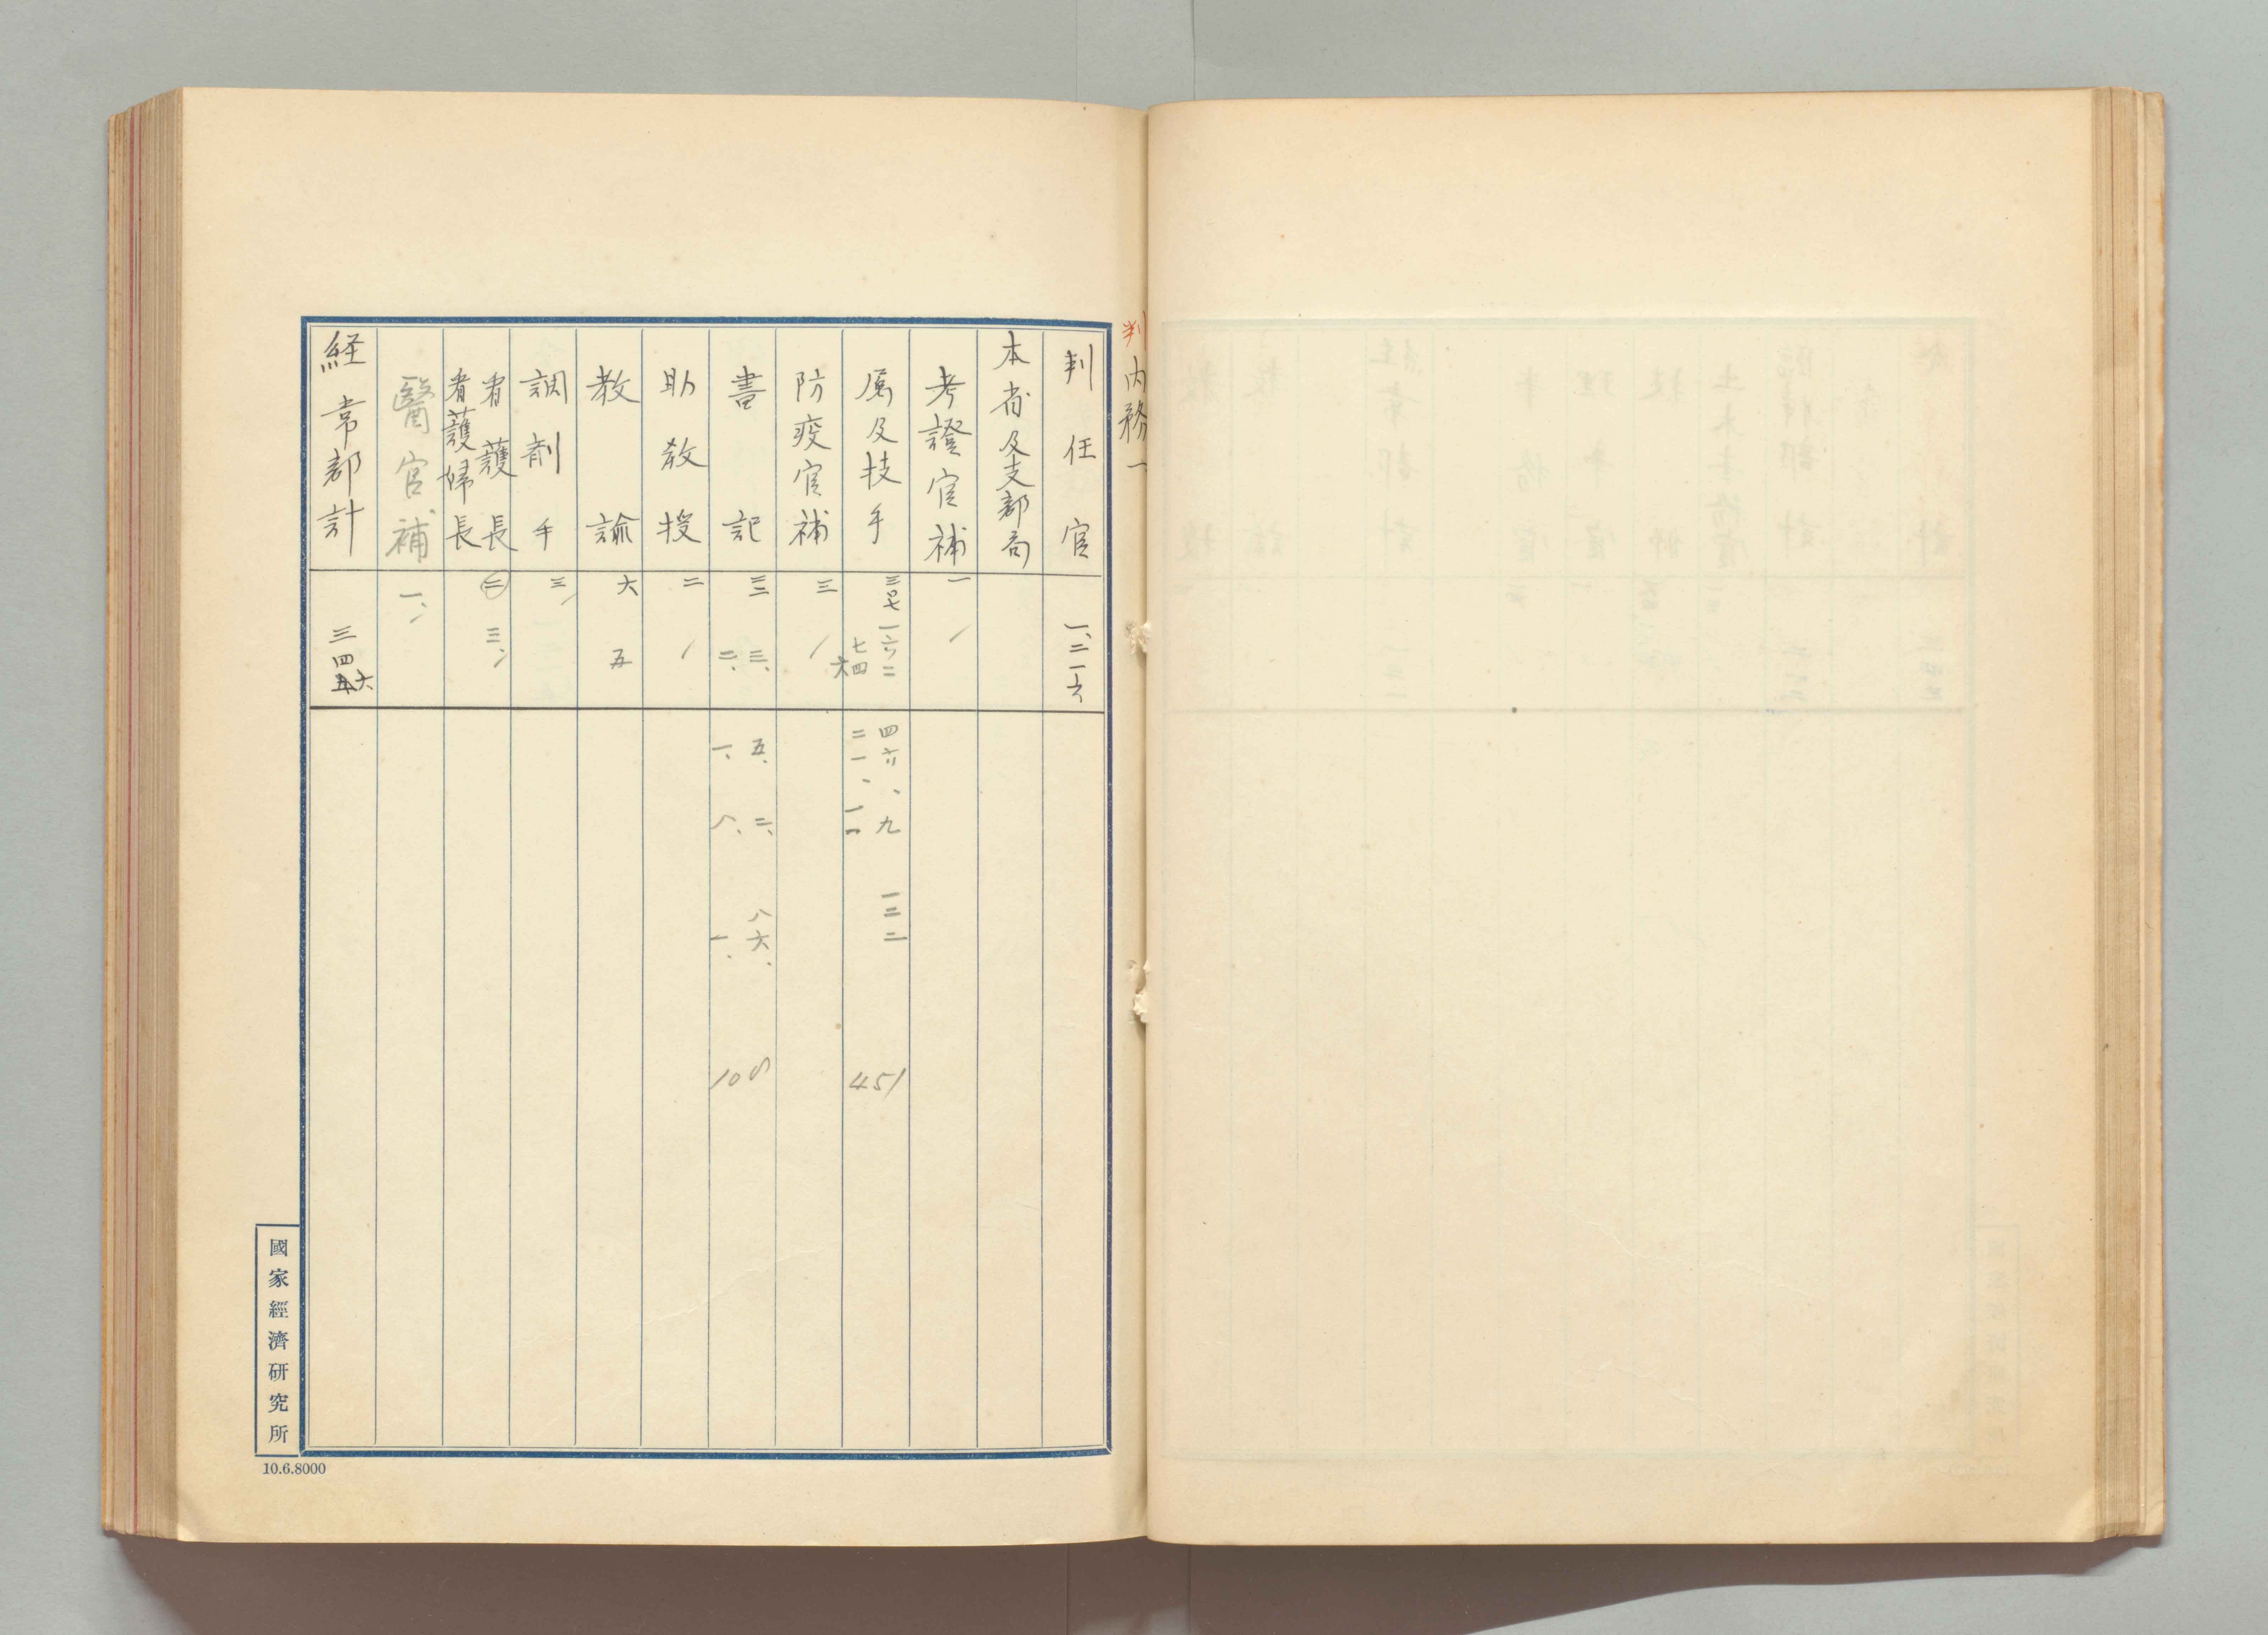 判
内務一
判任官 一、二一六
本省及支部局
考證官補 一
属及技手
四六、九
二一、
一三二
451
防疫官補 三
書記 三三
三、二、
五、一、
二、八、
八六、一、
108
助教授 二
教諭 六 五
調剤手 三
看護長
看護婦長 二 三、
醫官補 一、
経常部計 三四五六
國家經濟研究所
10.6.8000